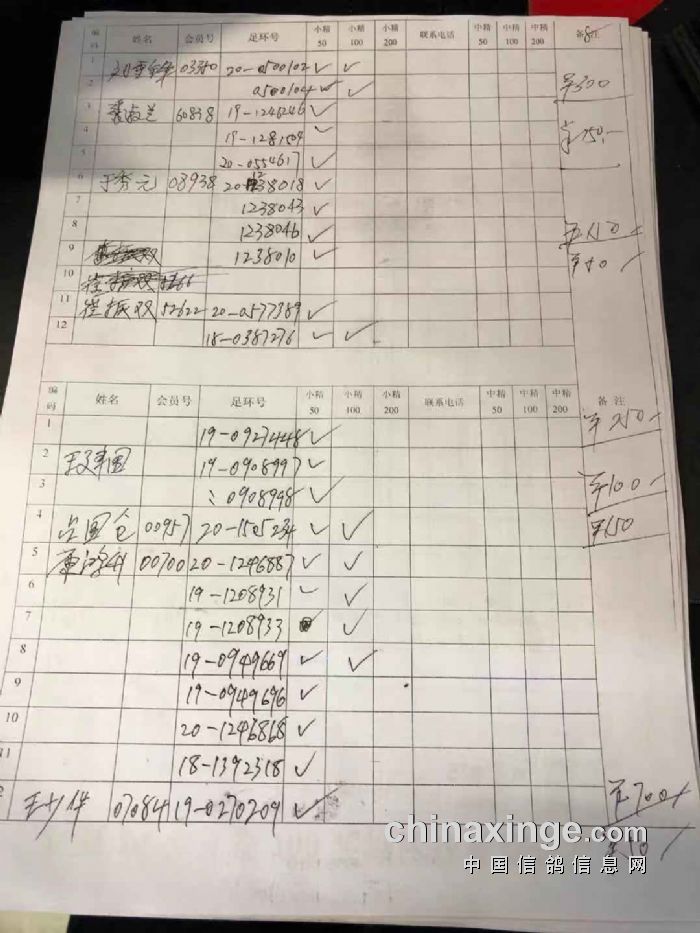 编码 姓名 会员号 足环号 小精50 小精100 小精200 联系电话 中精50 中精100 中精200 备注
1 03350 20-0500102 ✓ ✓
2 0500104 ✓ ✓ ¥300
3 60838 19-1246246 ✓
4 19-1281504 ✓ ¥150.-
5 20-0554617 ✓
6 于秀元 08938 20-1238018 ✓
7 1238043 ✓
8 1238046 ✓
9 1238010 ✓
10
11 崔振双 52622 20-0577389 ✓
12 18-0387276 ✓ ✓
编码 姓名 会员号 足环号 小精50 小精100 小精200 联系电话 中精50 中精100 中精200 备注
1 19-0927448 ✓ ¥250
2 19-0908997 ✓
3 0908998 ✓ ¥100
4 00957 20-1505234 ✓ ✓ ¥150
5 00700 20-1246887 ✓ ✓
6 19-1208931 ✓ ✓
7 19-1208933 ✓
8 19-0949669 ✓ ✓
9 19-0949696 ✓
10 20-1246868 ✓
11 18-1392318 ✓ ¥700
07084 19-0270209 ✓ ¥50
chinaxinge.com
中国信鸽信息网